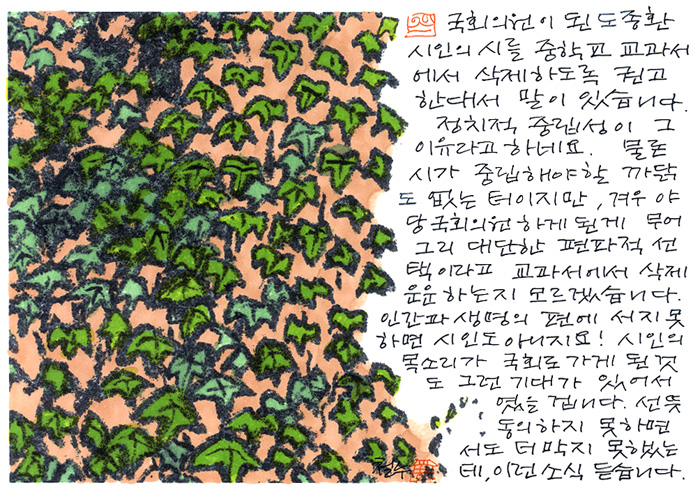 국회의원이 된 도종환
시인의 시를 중학교 교과서
에서 삭제하도록 권고
한대서 말이 있습니다.
정치적 중립성이 그
이유라고 하네요. 물론
시가 중립해야 할 까닭
도 없는 터이지만, 겨우 야
당국회의원하게 된게 무어
그리 대단한 편파적 선
택이라고 교과서에서 삭제
운운 하는지 모르겠습니다.
인간과 생명의 편에 서지 못
하면 시인도 아니지요! 시인의
목소리가 국회로 가게 된 것
도 그런 기대가 있어서
였을 겁니다. 선뜻
동의하지 못하면
서도 더 막지 못했는
데, 이런 소식 듣습니다.
철수